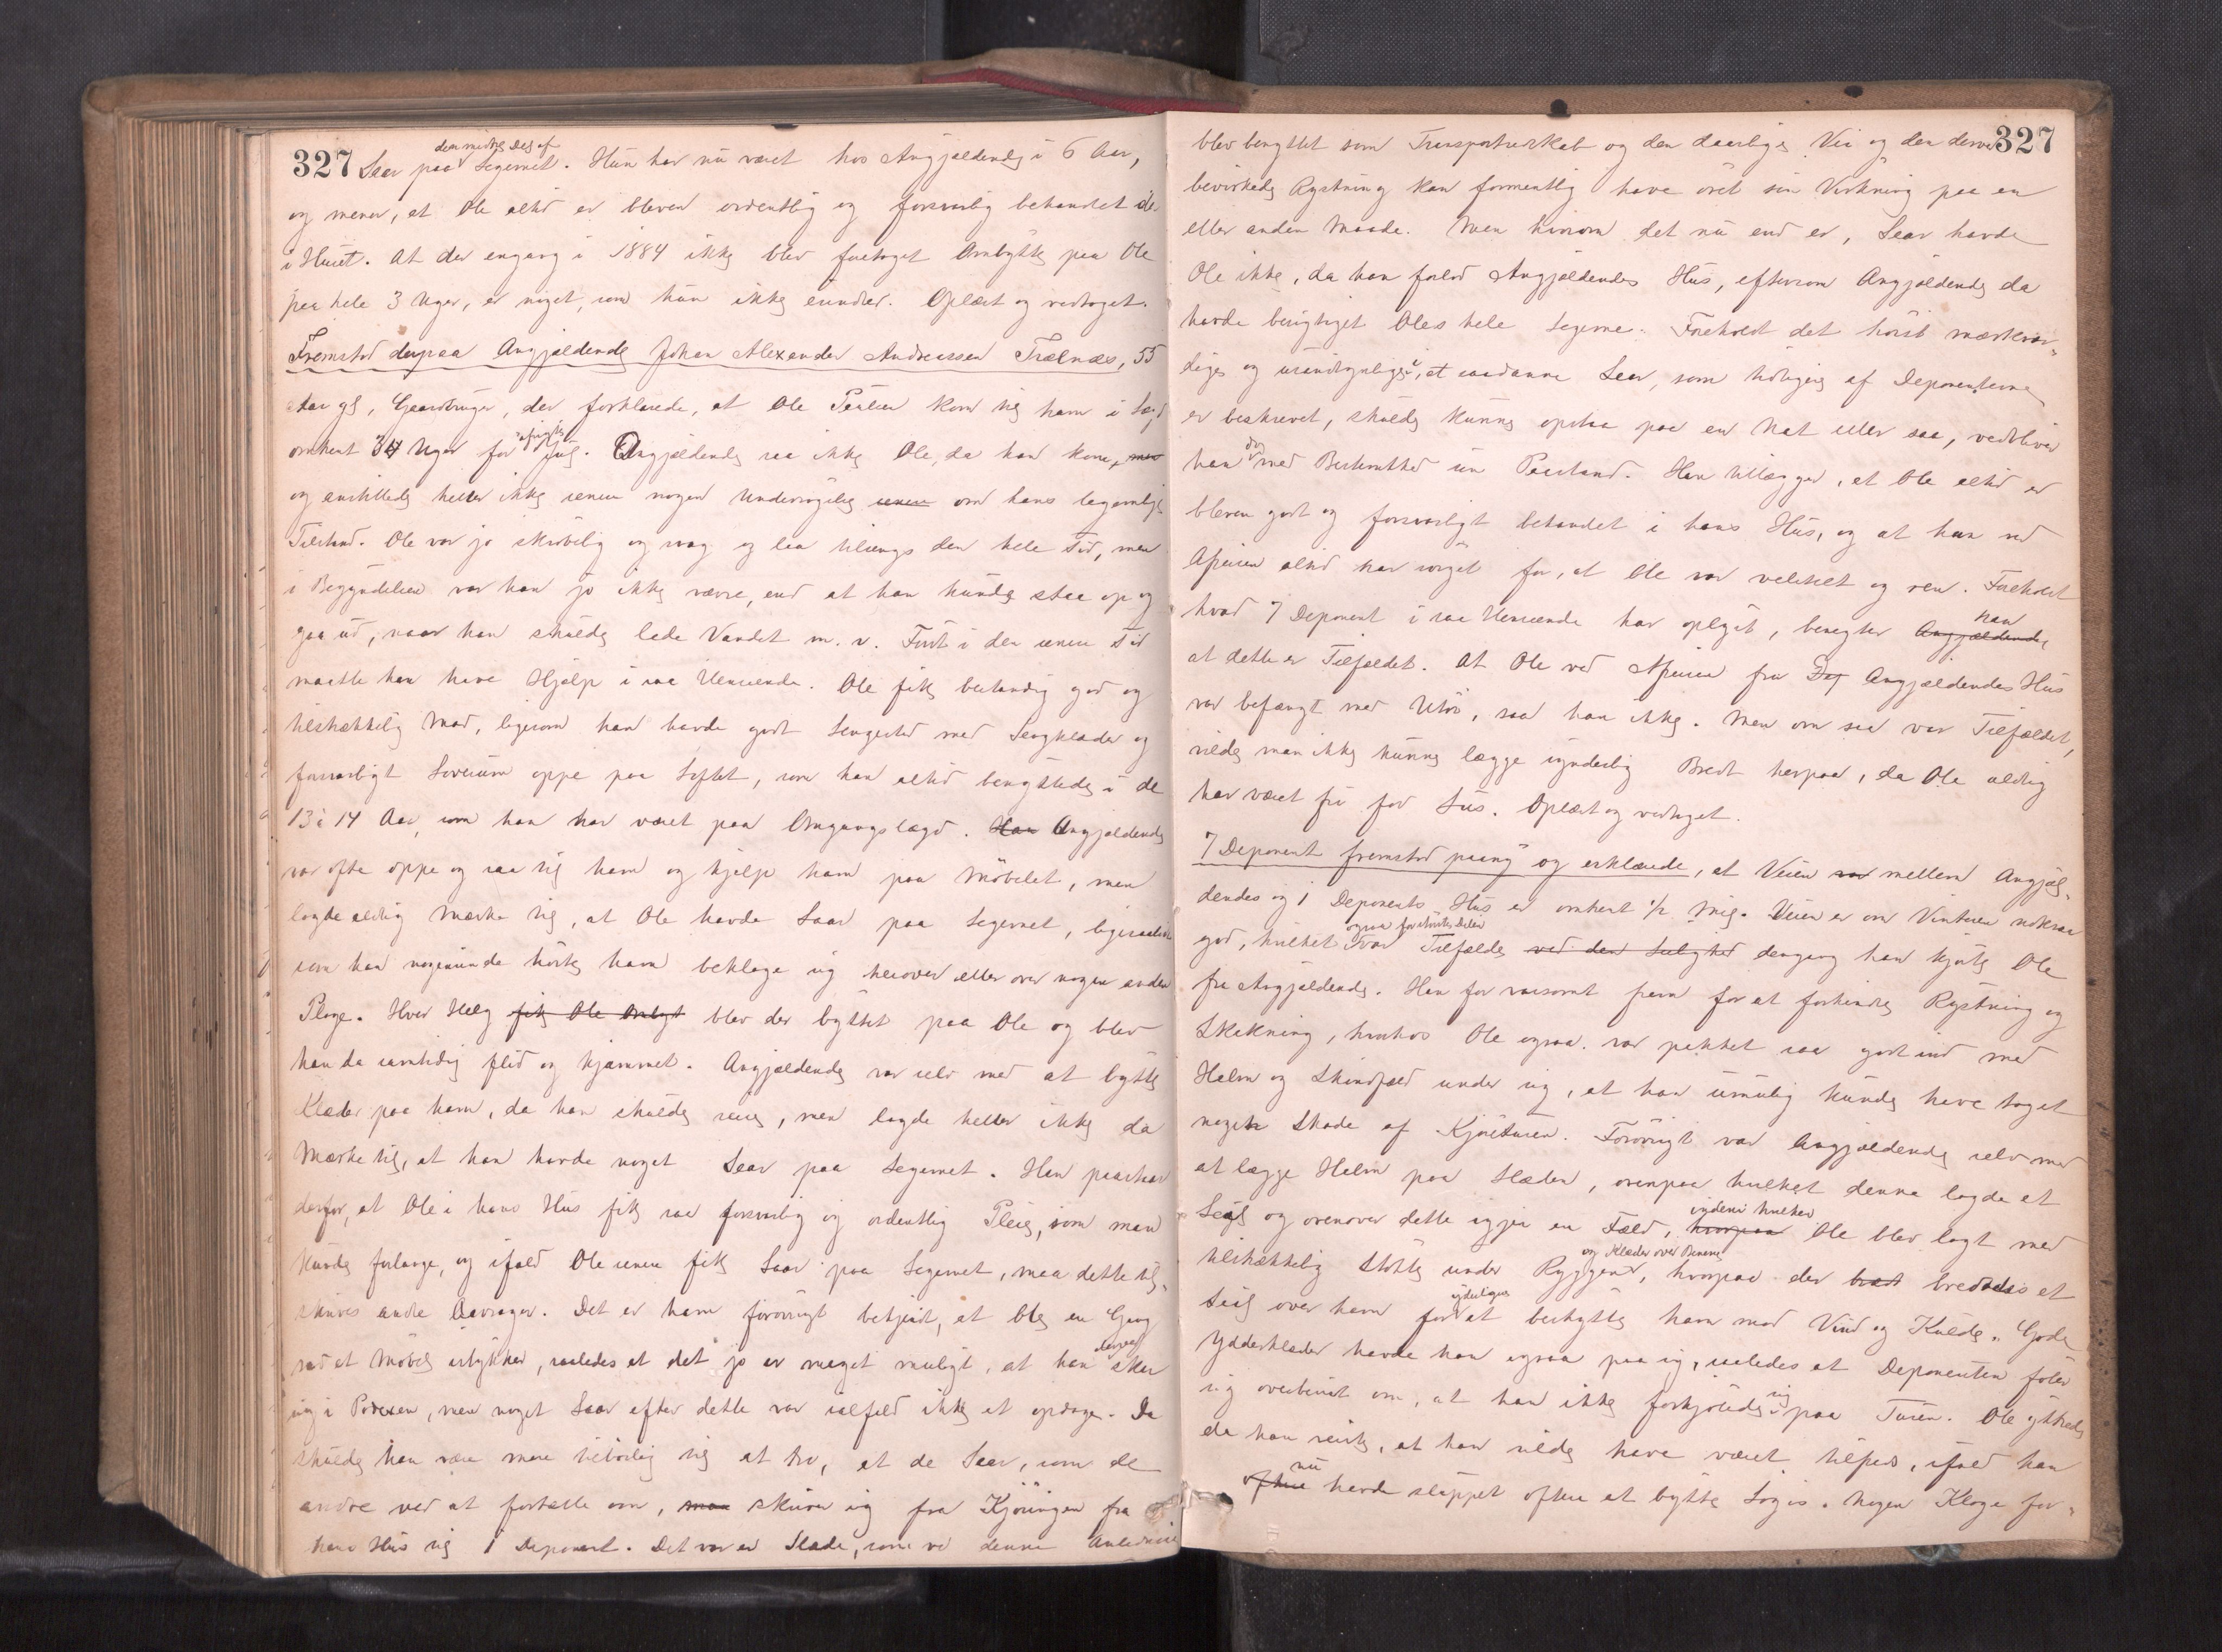 327 Saar paa den nedre Del af Legemet. Hun har nu været hos Angjældende i 6 Aar,
og mener, at Ole altid er bleven ordentlig og forsvarlig behandlet der
i Huset. At der engang i 1884 ikke blev foretaget Ombytte paa Ole
paa hele 3 Uger, er noget, som hun ikke erindrer. Oplæst og vedtaget.
Fremstod derpaa Angjældende Johan Alexander Andreassen Trælnæs, 55
Aar gl, Gaardbruger, der forklarede, at Ole Paulsen kom til ham i Lægd
omkent 3 Uger før Jul. Angjældende saa ikke Ole, da han kom,
og anstillede heller ikke senere nogen Undersøgelse om hans legemlige
Tilstand. Ole var jo skrøbelig og svag og laa tilsengs den hele Tid, men
i Begyndelsen var han jo ikke værre, end at han kunde staa op og
gaa ud, naar han skulde lade Vandet m. v. Først i den senere Tid
maatte han have Hjælp i saa Henseende. Ole fik bestandig god og
tilstrækkelig Mad, ligesom han havde godt Sengested med Sengklæder og
forsvarligt Soverum oppe paa Loftet, som han altid benyttede i de
13 à 14 Aar, som han har været paa Omgangslægd. Han Angjældende
var ofte oppe og saa til ham og hjalp ham paa Möbelet, men
lagde aldrig Mærke til, at Ole havde Saar paa Legemet, ligesaalidt
som han nogensinde hörte ham beklage sig herover eller over nogen anden
Plage. Hver Helg fik Ole Ombyt blev der byttet paa Ole og blev
han da samtidig flid og kjæmmet. Angjældende var selv med at bytte
Klæder paa ham, da han skulde reise, men lagde heller ikke da
Mærke til, at han havde noget Saar paa Legemet. Han paastaar
derfor, at Ole i hans Hus fik saa forsvarlig og ordentlig Pleie, som man
kunde forlange, og ifald Ole senere fik Saar paa Legemet, maa dette til-
skrives andre Aarsager. Det er ham forövrigt bekjendt, at Ole en Gang
red et Möbel istykker, saaledes at det jo er meget muligt, at han derved skar
sig i Podexen, men noget Saar efter dette var ialfald ikke at opdage. Da
skulde han være mere tilböielig til at tro, at de Saar, som de
andre ved at fortælle om, man skriver sig fra Kjöringen fra
hans Hus til 1 Deponent. Det var en Slæde, som ved denne Anledning
327
blev benyttet som Transportredskab og den daarlige Vei og den derved
bevirkede Rystning kan formentlig have övet sin Virkning paa en
eller anden Maade. Men hvisom det nu end er, Saar havde
Ole ikke, da han forlod Angjældendes Hus, eftersom Angjældende da
havde besigtiget Oles hele Legeme. Foreholdt det höist mærkvær-
dige og usandsynlige i, at saadanne Saar, som tidligere af Deponenterne
er beskrevet, skulde kunne opstaa paa en Nat eller saa, vedbliver
han dog med Bestemthed sin Paastand. Han tillægger, at Ole altid er
bleven godt og forsvarligt behandlet i hans Hus, og at han ved
Afreisen altid har sörget for, at Ole var velstelt og ren. Foreholdt
hvad 7 Deponent i saa Henseende har oplyst, benegter Angjældende han
at dette er Tilfældet. At Ole ved Afreisen fra Angjældendes Hus
var befængt med Utöi, saa han ikke. Men om saa var Tilfældet,
vilde man ikke kunne lægge synderlig Bredt herpaa, da Ole aldrig
har været fri for Lus. Oplæst og vedtaget.
7 Deponent fremstod paany og erklærede, at Veien var mellem Angjæl-
dendes og 1 Deponents Hus er omkent 1/2 Mil. Veien er om Vinteren noksaa
god, hvilket ogsaa for störste Delen var Tilfælde ved den Leilighed dengang han kjörte Ole
fra Angjældende. Han for varsomt frem for at forhindre Rystning og
Skakning, hvorhos Ole ogsaa var pakket saa godt ind med
Halm og Skindfæld under sig, at han umulig kunde have taget
nogen Skade af Kjöreturen. Forövrigt var Angjældende selv med
at lægge Halm paa Slæden, ovenpaa hvilket denne lagde et
Seil og ovenover dette igjen en Fæld, hvorpaa indeni hvilken Ole blev lagt med
tilstrækkelig Støtte under Ryggen og Klæder over Benene, hvorpaa der bredtes et
Seil over ham for yderligere at beskytte ham mod Vind og Kulde. Gode
Ydderklæder havde han ogsaa paa sig, saaledes at Deponenten föler
sig overbevist om, at han ikke forkjölede sig paa Turen. Ole yttrede
da han reiste, at han vilde have været tilfreds, ifald han
oftere nu havde sluppet oftere at bytte Logis. Nogen Klage for-